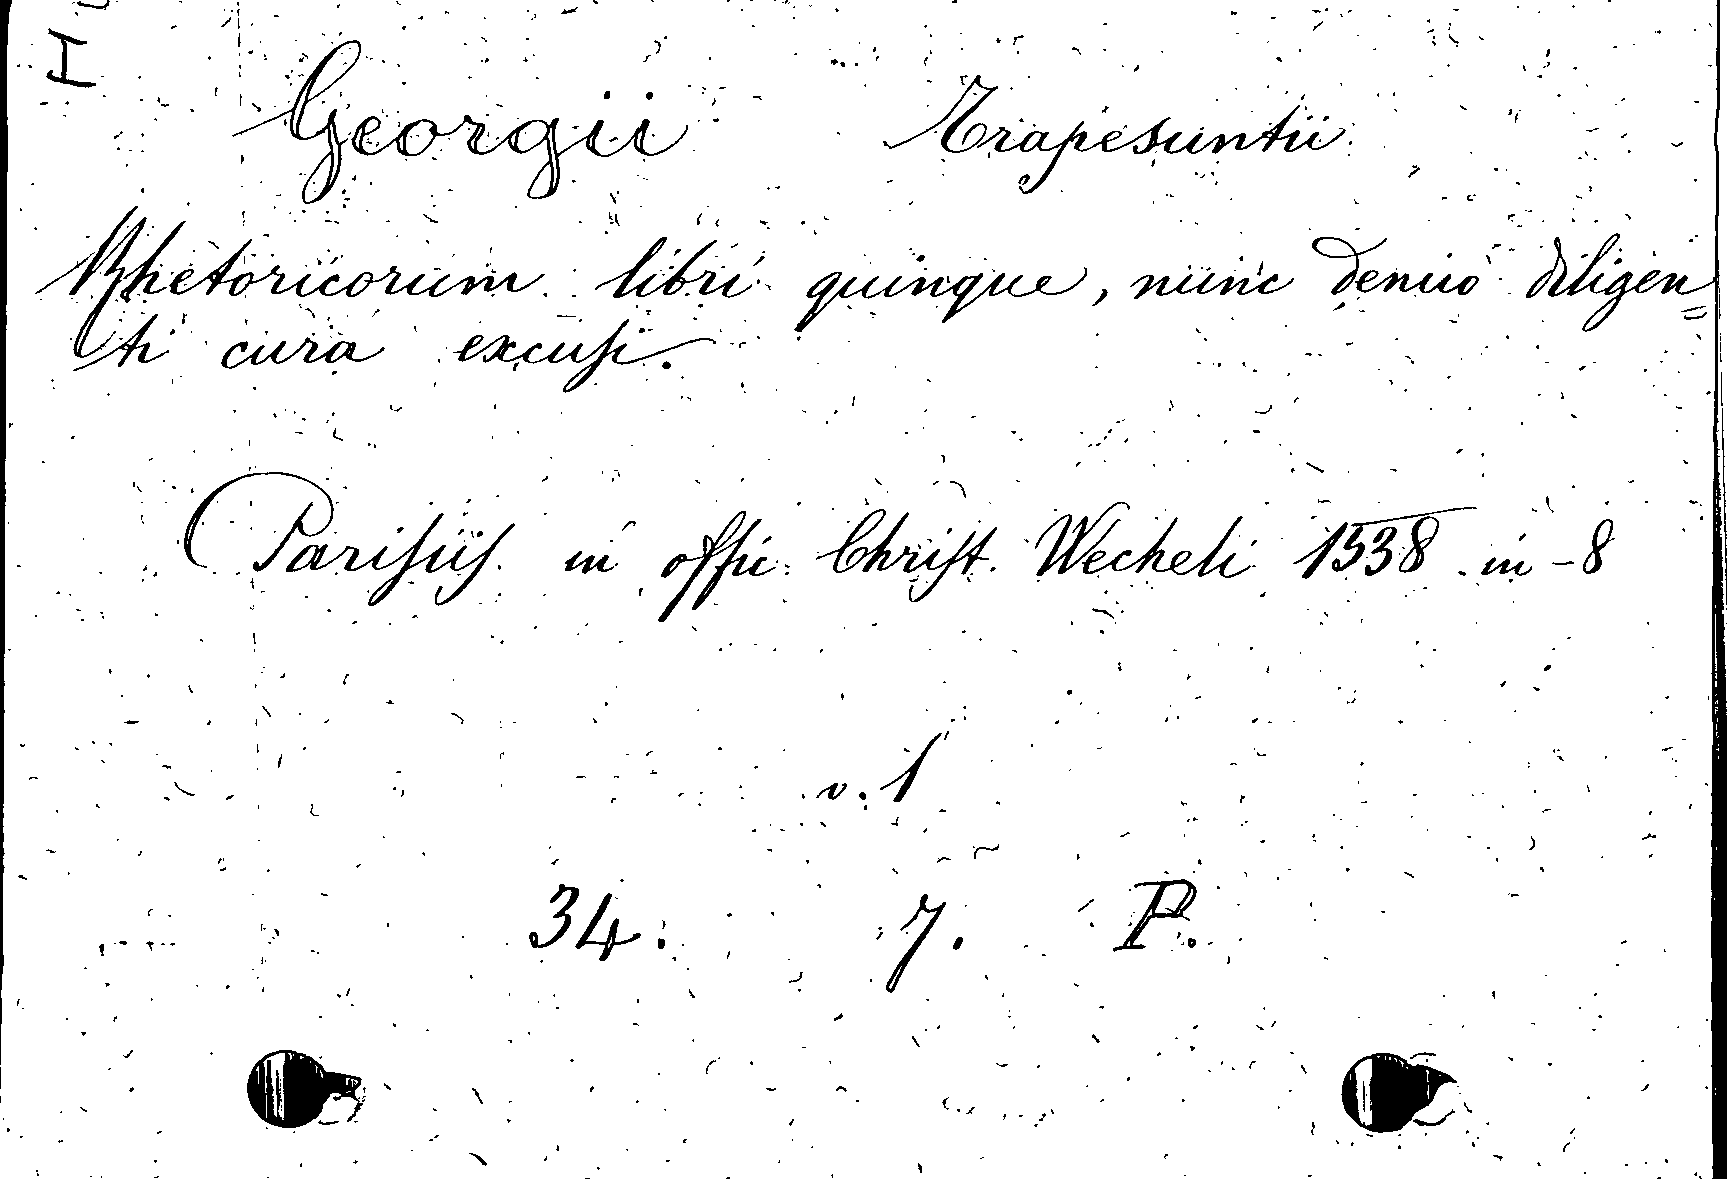 Georgii Trapesuntii
Rhetoricorum libri quinque, nunc denuo diligen=
ti cura excusi.
Parisiis in offic. Christ. Wecheli 1538 in-8
v. 1
34. 7. P.